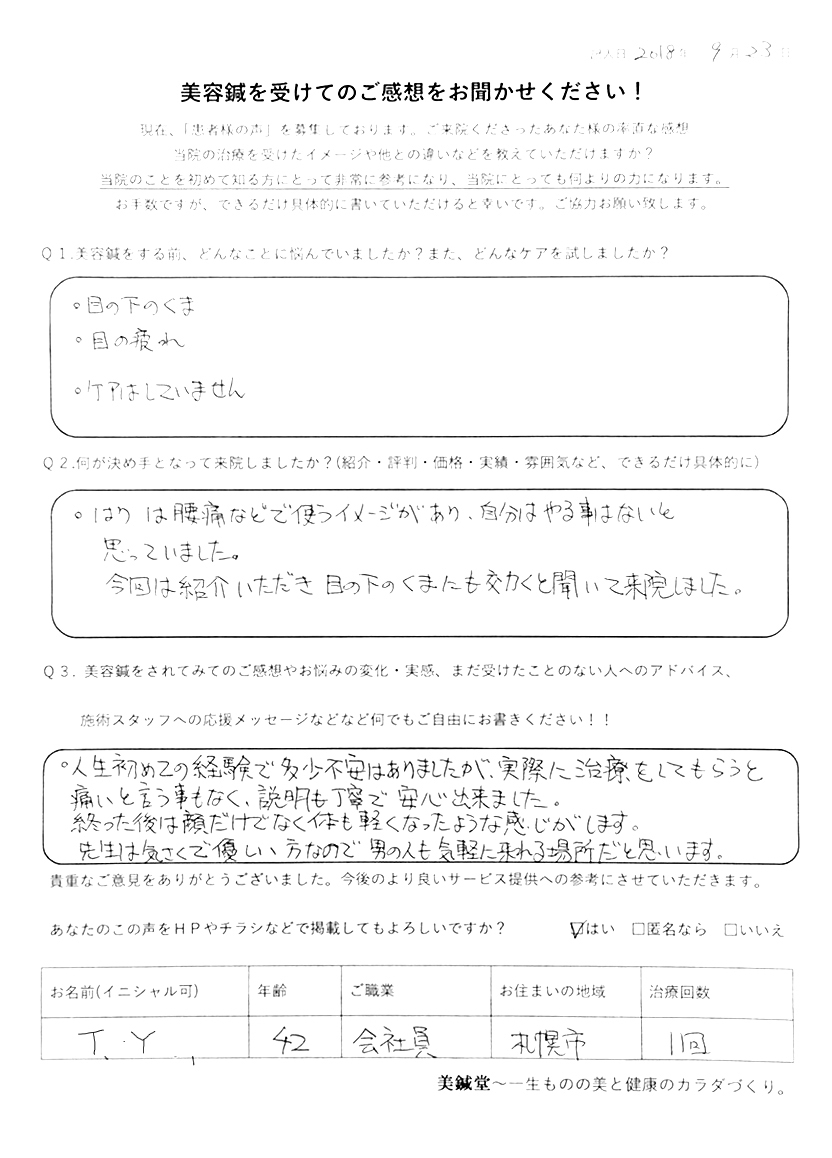 記入日 2018年 9月23日
美容鍼を受けてのご感想をお聞かせください！
現在、「患者様の声」を募集しております。ご来院くださったあなた様の率直な感想
当院の治療を受けたイメージや他との違いなどを教えていただけますか？
当院のことを初めて知る方にとって非常に参考になり、当院にとっても何よりの力になります。
お手数ですが、できるだけ具体的に書いていただけると幸いです。ご協力お願い致します。
Q１.美容鍼をする前、どんなことに悩んでいましたか？また、どんなケアを試しましたか？
。目の下のくま
。目の疲れ
。ケアはしていません
Q２.何が決め手となって来院しましたか？(紹介・評判・価格・実績・雰囲気など、できるだけ具体的に)
。はり は腰痛などで使うイメージがあり、自分はやる事はないと
思っていました。
今回は紹介いただき 目の下のくまにも効くと聞いて来院しました。
Q３. 美容鍼をされてみてのご感想やお悩みの変化・実感、まだ受けたことのない人へのアドバイス、
施術スタッフへの応援メッセージなどなど何でもご自由にお書きください！！
。人生初めての経験で多少不安はありましたが、実際に治療をしてもらうと
痛いと言う事もなく、説明も丁寧で 安心出来ました。
終った後は顔だけでなく体も軽くなったような感じがします。
先生は気さくで優しい方なので 男の人も気軽に来れる場所だと思います。
貴重なご意見をありがとうございました。今後のより良いサービス提供への参考にさせていただきます。
あなたのこの声をＨＰやチラシなどで掲載してもよろしいですか？ ☑はい □匿名なら □いいえ
お名前(イニシャル可) 年齢 ご職業 お住まいの地域 治療回数
T.Y 42 会社員 札幌市 1回
美鍼堂～一生ものの美と健康のカラダづくり。